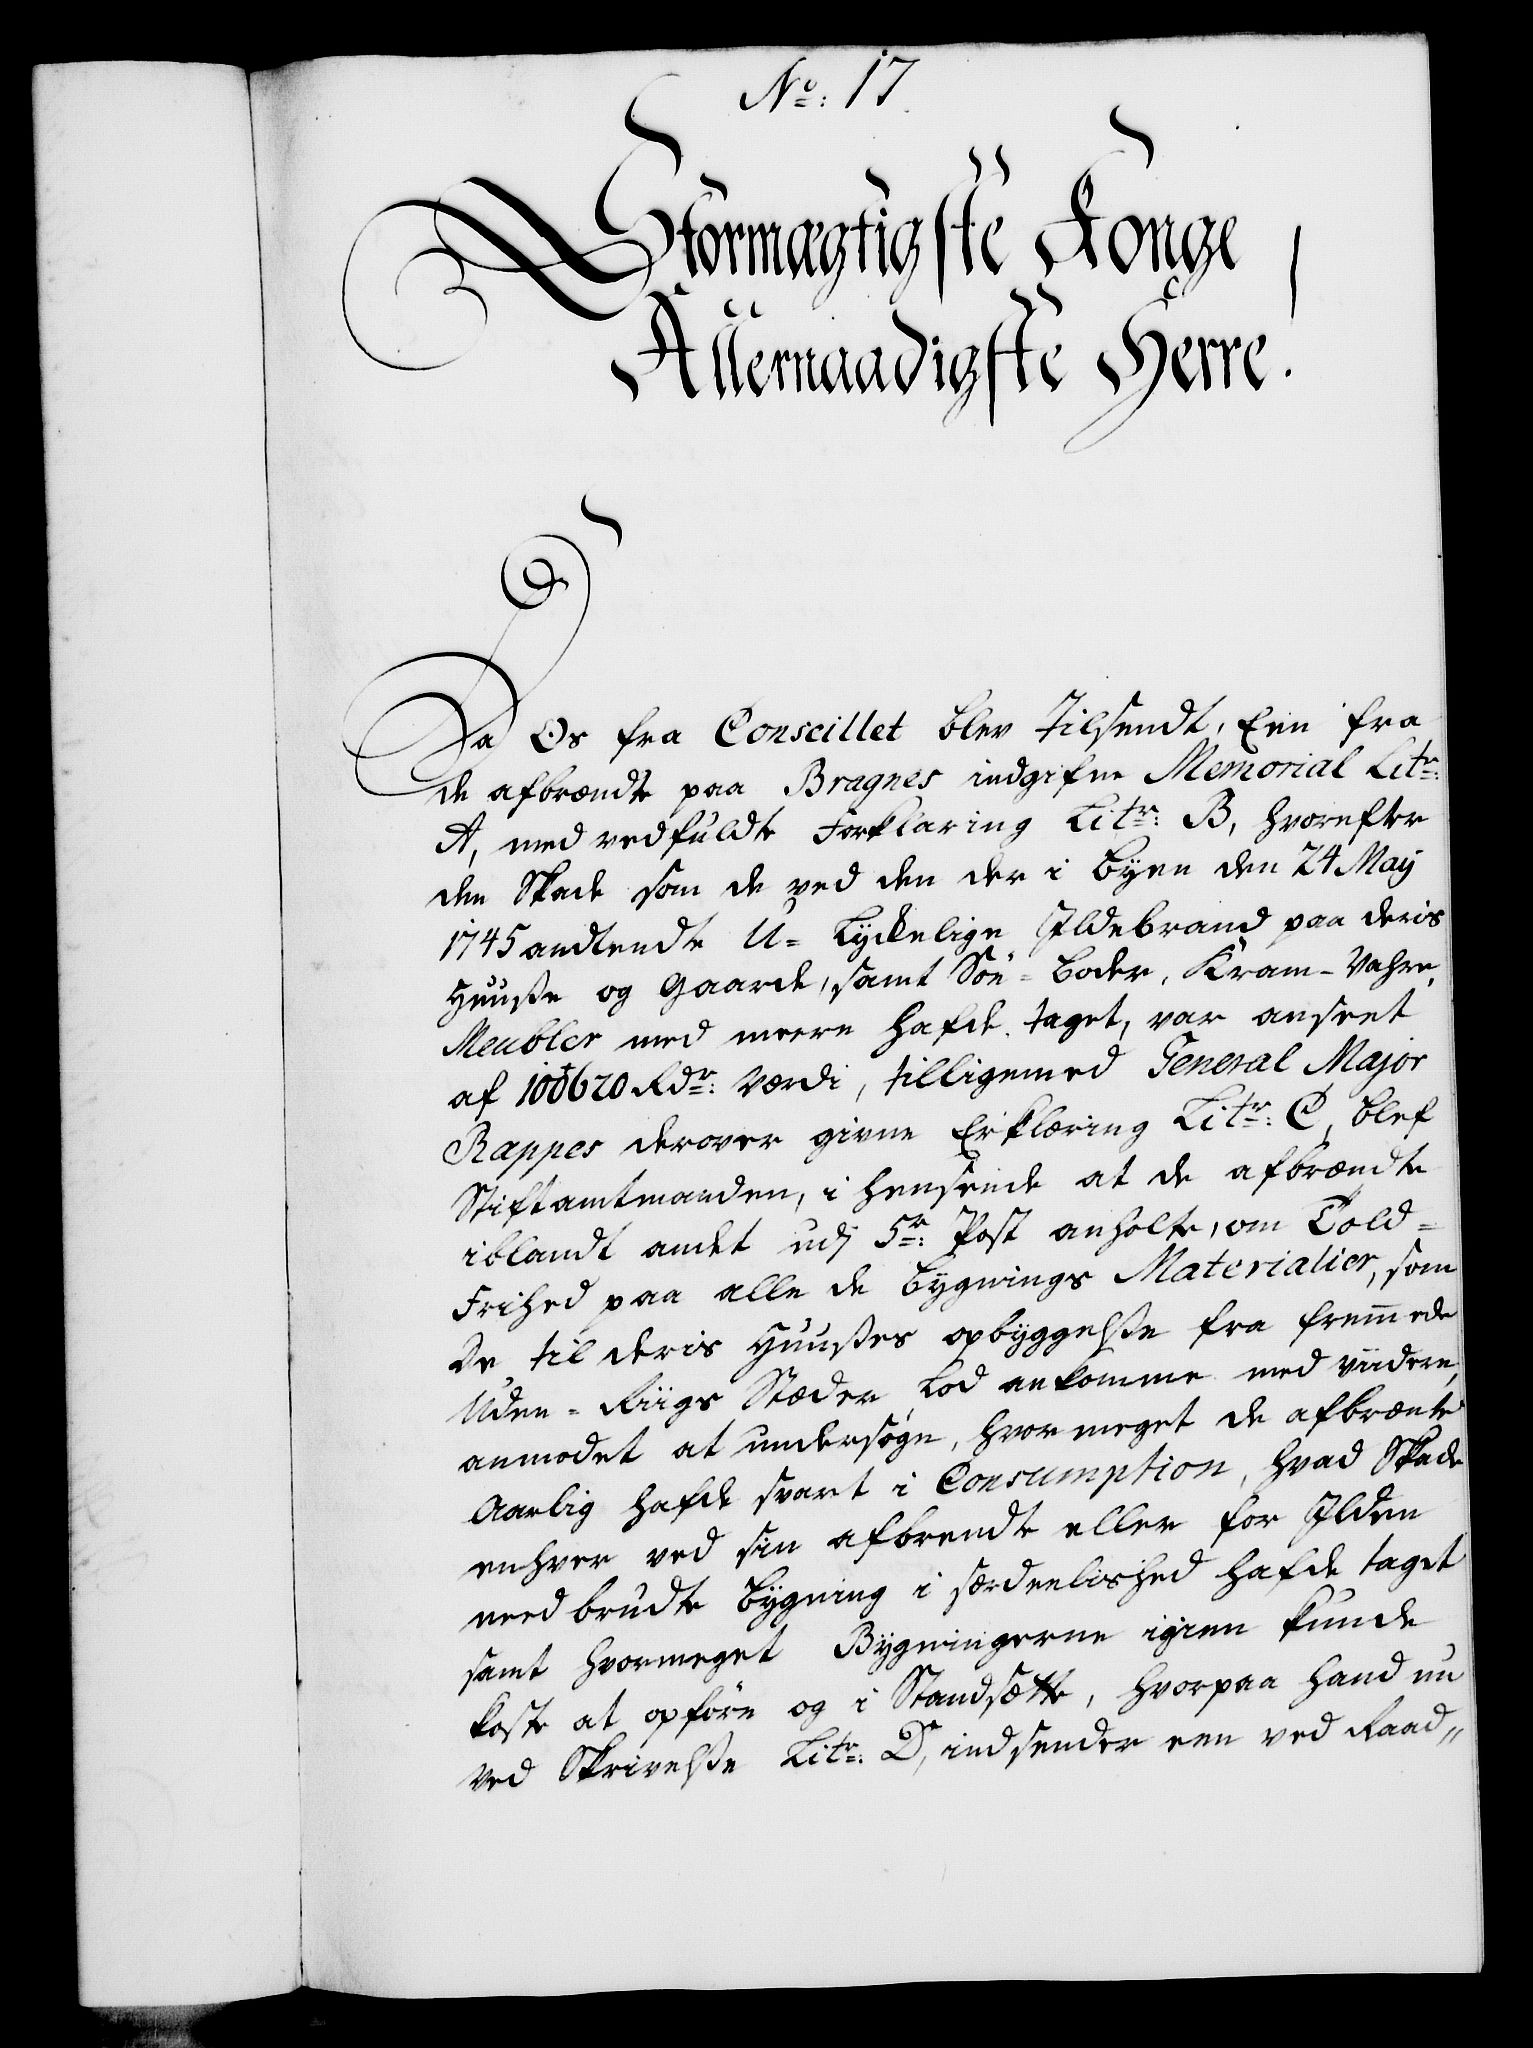 No: 17
Stormægtigste Konge
Allernaadigste Herre!
Da Os fra Conseillet blev tilsendt, Een fra
de afbrændte paa Bragnes indgifne Memorial Litr:
A, med vedfuldte Forklaring Litr: B, hvorefter
den Skade som de ved den der i Byen den 24 Maij
1745 andtendte U= Lyckelige Ildebrand paa deris
Huuße og Gaarde, samt Söe=boder, Kram-Vahre,
Meubler med meere hafde taget, var anseet
af 100620 Rdr: Værdi, tilligemed General Major
Rappes derover givne Erklæring Litr: C, blef
Stiftamtmanden, i henseende at de afbrændte
iblandt andet udj 5r: Post anholte, om Told=
Frihed paa alle de bygnings Materialier, som
De til deris Huußes opbyggelße fra fremmede
Uden=Riigs Stæder lod ankomme med viidere,
anmodet at undersøge, hvor meget de afbrænte
Aarlig hafde svart i Consumption, hvad Skade
enhver ved sin afbrendte eller for Ilden
need brudte bygning i særdeelished hafde taget
samt hvormeget Bygningerne igien kunde
koste at opföre og i Standsætte, hvorpaa hand nu
ved Skrivelße Litr: D, indsender een ved Raad„